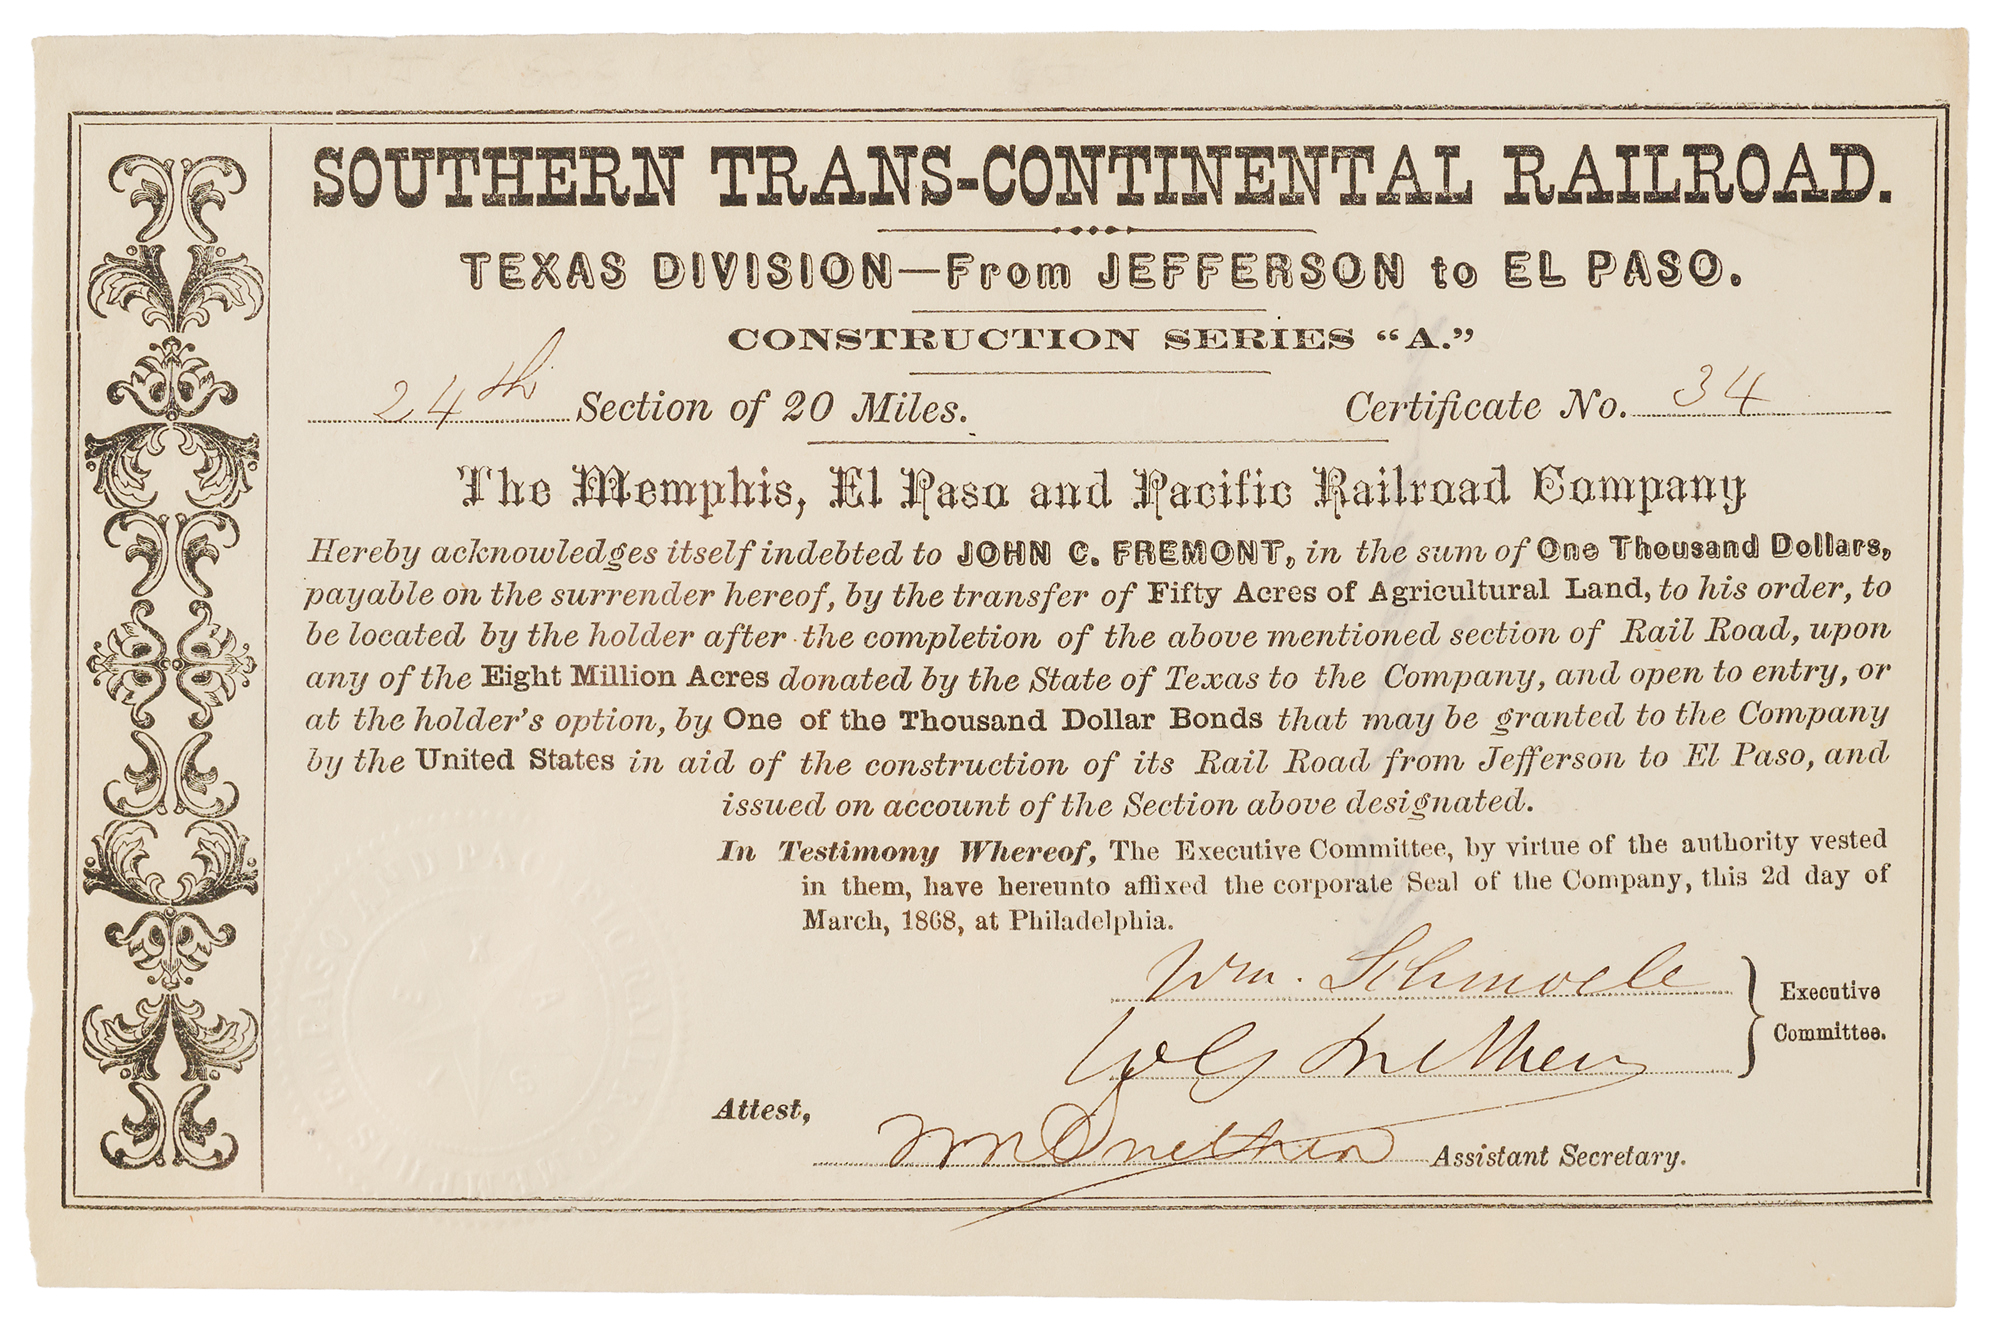 SOUTHERN TRANS-CONTINENTAL RAILROAD.
TEXAS DIVISION—From JEFFERSON to EL PASO.
CONSTRUCTION SERIES “A.”
24th Section of 20 Miles. Certificate No. 34
The Memphis, El Paso and Pacific Railroad Company
Hereby acknowledges itself indebted to JOHN C. FREMONT, in the sum of One Thousand Dollars,
payable on the surrender hereof, by the transfer of Fifty Acres of Agricultural Land, to his order, to
be located by the holder after the completion of the above mentioned section of Rail Road, upon
any of the Eight Million Acres donated by the State of Texas to the Company, and open to entry, or
at the holder’s option, by One of the Thousand Dollar Bonds that may be granted to the Company
by the United States in aid of the construction of its Rail Road from Jefferson to El Paso, and
issued on account of the Section above designated.
In Testimony Whereof, The Executive Committee, by virtue of the authority vested
in them, have hereunto affixed the corporate Seal of the Company, this 2d day of
March, 1868, at Philadelphia.
Wm. Schmoele
Executive
Committee.
Attest,
Assistant Secretary.
MEMPHIS EL PASO AND PACIFIC RAIL R CO
TEXAS